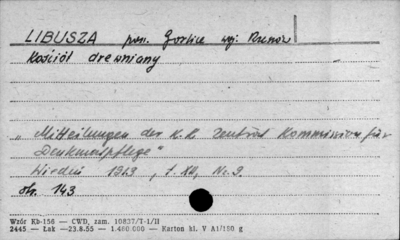 LIBUSZA pow. Gorlice woj. Rzeszów
Kościół drewniany
„Mitteilungen der K.K. Zentral Kommission für
Denkmalpflege"
Wiedeń 1913, t. XII, Nr. 9.
str. 143
Wzór Kb-156 — CWD, zam. 10837/T-1/II
2445 — Łak —23.8.55 — 1.480 000 — Karton kl. V A1/180 g